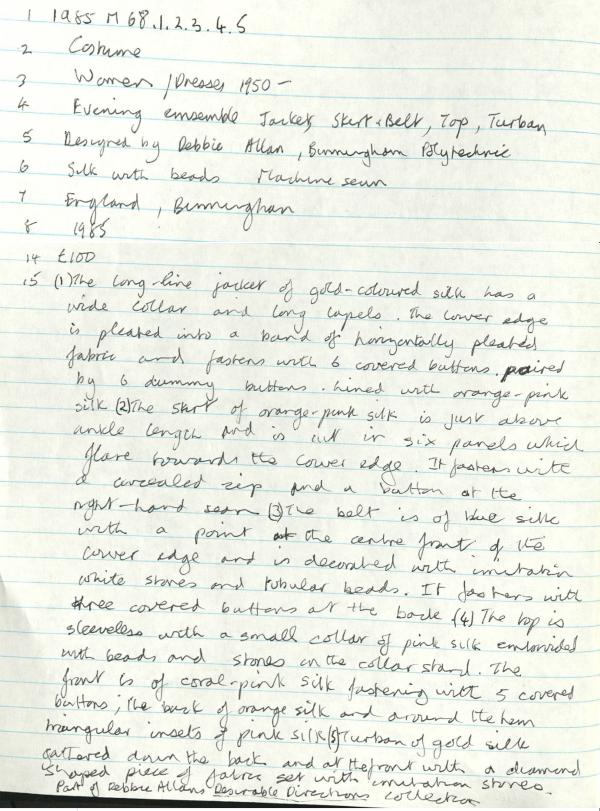 1 1985 M 68.1.2.3.4.5
2 Costume
3 Women / Dresses 1950 -
4 Evening emsemble Jacket, Skirt + Belt, Top, Turban
5 Designed by Debbie Allan, Birmingham Polytechnic
6 Silk with beads Machine sewn
7 England, Birmingham
8 1985
14 £100
15 (1) The long-line jacket of gold-coloured silk has a
wide collar and long lapels. The lower edge
is pleated into a band of horizontally pleated
fabric and fastens with 6 covered buttons paired
by 6 dummy buttons. Lined with orange-pink
silk (2) The skirt of orange-pink silk is just above
ankle length and is cut in six panels which
flare towards the lower edge. It fastens with
a concealed zip and a button at the
right-hand seam (3) The belt is of blue silk
with a point at the centre front of the
lower edge and is decorated with imitation
white stones and tubular beads. It fastens with
three covered buttons at the back (4) The top is
sleeveless with a small collar of pink silk embroided
with beads and stones on the collar stand. The
front is of coral-pink silk fastening with 5 covered
buttons; the back of orange silk and around the hem
triangular insets of pink silk (5) Turban of gold silk
gathered down the back and at the front with a diamond
shaped piece of fabric set with imitation stones.
Part of Debbie Allans Desirable Directions collection